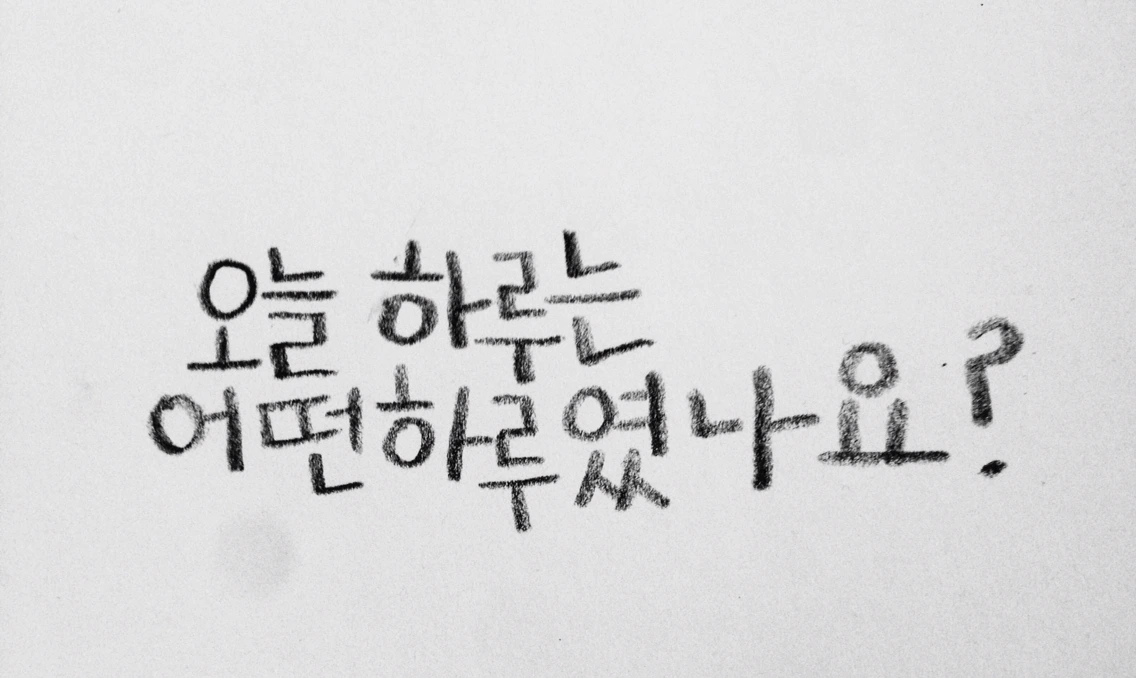 오늘 하루는
어떤하루였나요?